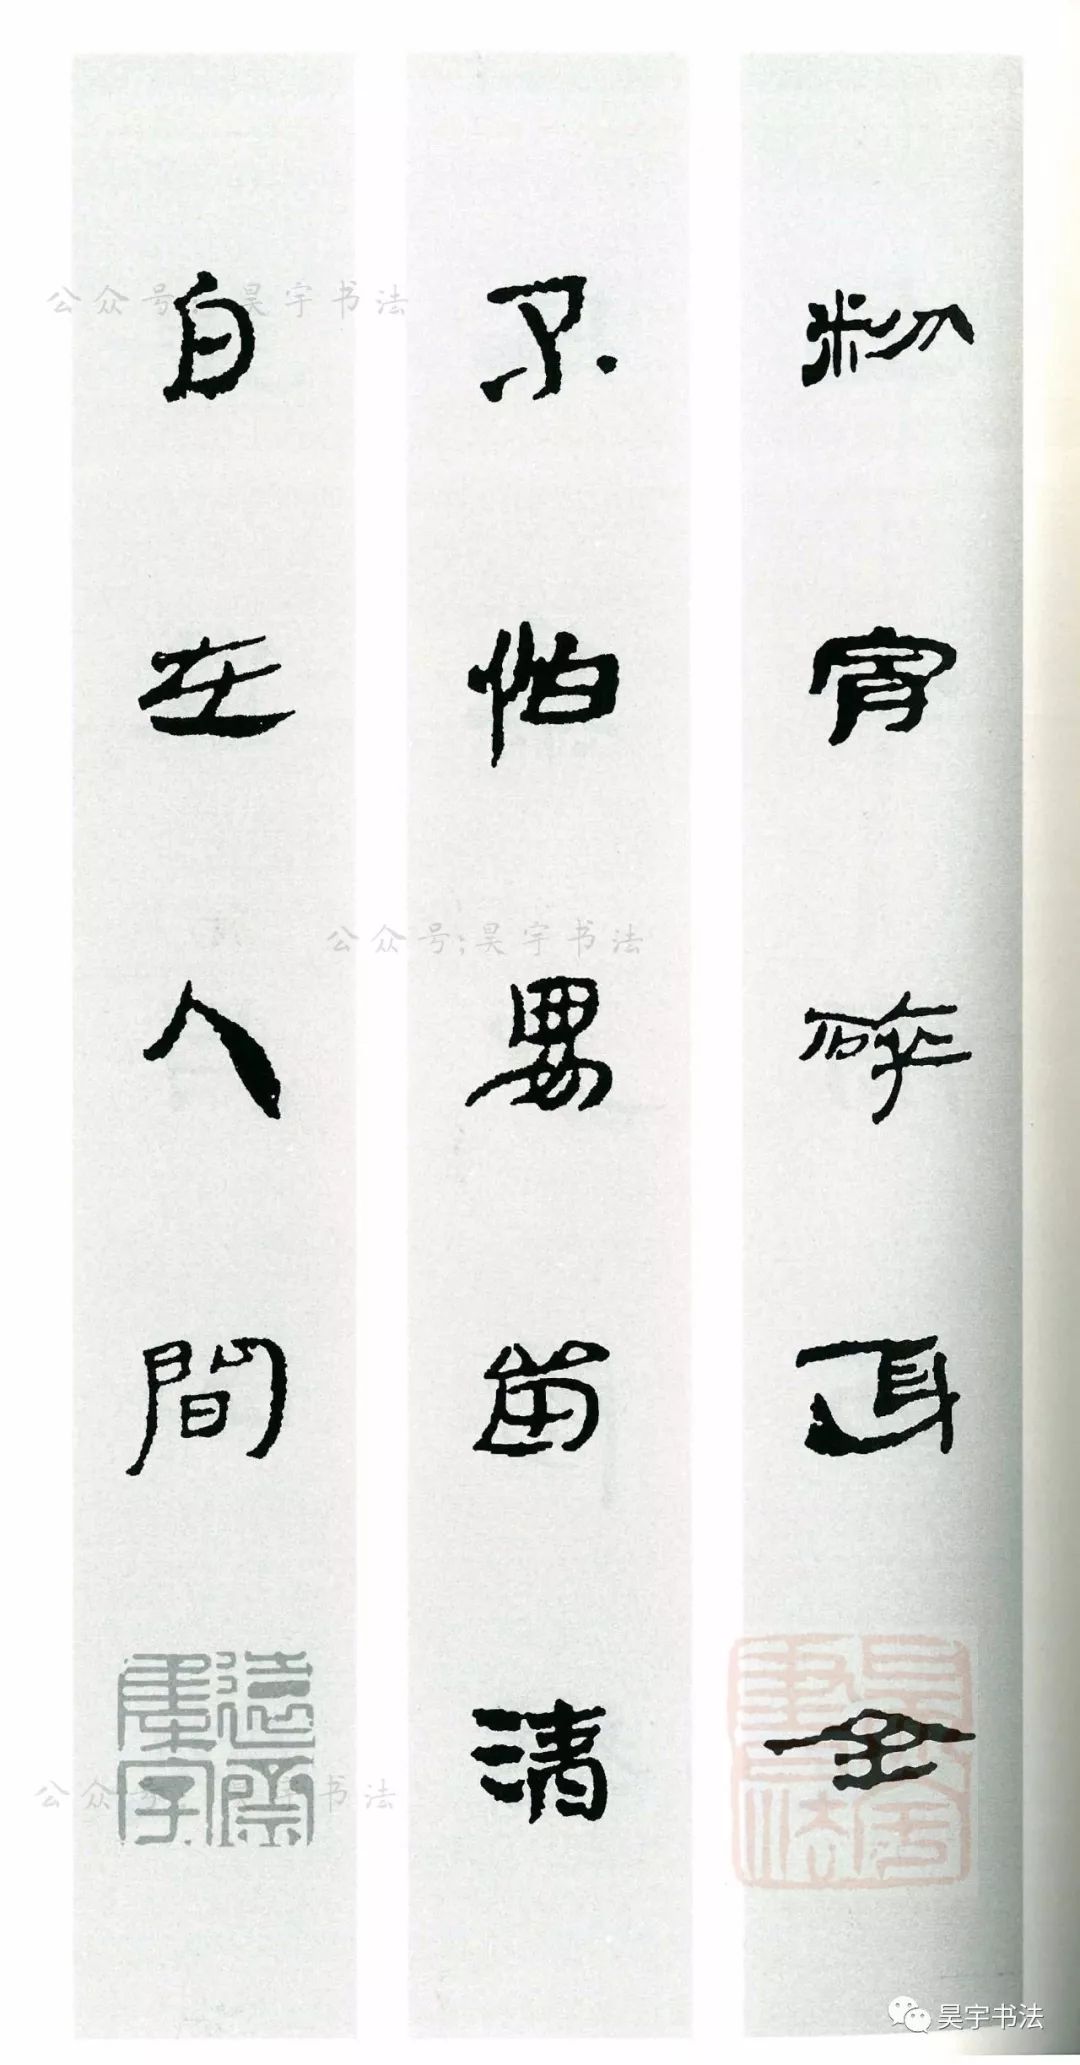 粉骨碎身全
不怕要留清
白在人間
遠齋集字
昊宇書法
公众号:昊宇书法
公众号:昊宇书法
公众号:昊宇书法
昊宇书法